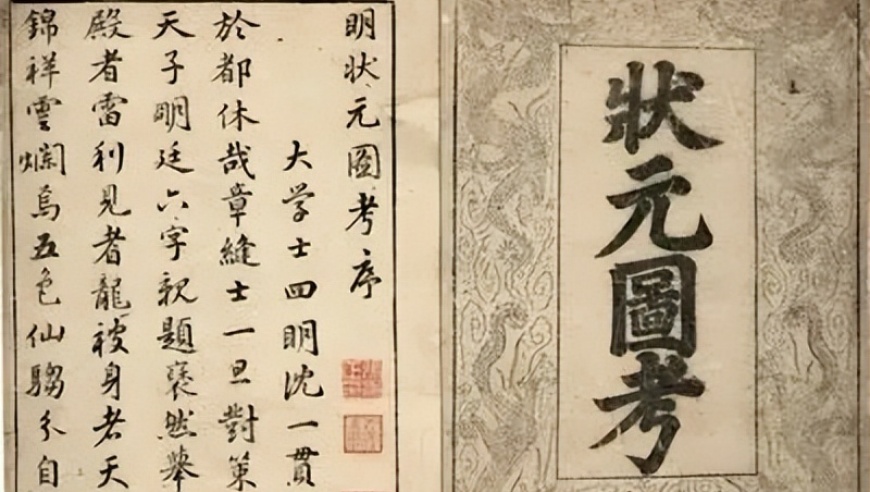 狀元圖考
明狀元圖考序
大学士四明沈一貫
於都休哉章縫士一旦對策
天子明廷六字親題褎然舉
殿者雷利見者龍被身者天
錦祥雲爛焉五色仙騶分自